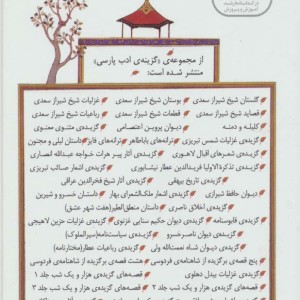 از مجموعه‌ی «گزینه‌ی ادب پارسی»
منتشر شده است:
گلستان شیخ شیراز سعدی بوستان شیخ شیراز سعدی غزلیات شیخ شیراز سعدی
قصاید شیخ شیراز سعدی قطعات شیخ شیراز سعدی رباعیات شیخ شیراز سعدی
کلیله و دمنه دیوان پروین اعتصامی گزیده‌ی مثنوی معنوی
گزیده‌ی غزلیات شمس تبریزی ترانه‌های باباطاهر ترانه‌های فایز داستان لیلی و مجنون
گزیده‌ی شعرهای اقبال لاهوری گزیده‌ی آثار پیر هرات خواجه عبدالله انصاری
گزیده‌ی تذکرة الاولیا فریدالدین عطار نیشابوری گزیده‌ی اشعار صائب تبریزی
گزیده‌ی تاریخ بیهقی گزیده‌ی آثار شیخ فخرالدین عراقی
دیوان حافظ شیرازی گزیده‌ی اشعار ملک‌الشعرای بهار داستان خسرو و شیرین
گزیده‌ی اخلاق ناصری داستان منطق‌الطیر (هفت شهر عشق)
گزیده‌ی قابوسنامه گزیده‌ی دیوان حکیم سنایی غزنوی گزیده‌ی غزلیات حزین لاهیجی
گزیده‌ی دیوان ناصرخسرو گزیده‌ی سیاست‌نامه (سیرالملوک)
گزیده‌ی دیوان شاه نعمت‌الله ولی گزیده‌ی رباعیات عطار (مختارنامه)
پنج قصه‌ی برگزیده از شاهنامه‌ی فردوسی هشت قصه‌ی برگزیده از شاهنامه‌ی فردوسی
گزیده‌ی غزلیات بیدل دهلوی قصه‌های گزیده‌ی هزار و یک شب جلد ۱
قصه‌های گزیده‌ی هزار و یک شب جلد ۲ قصه‌های گزیده‌ی هزار و یک شب جلد ۳